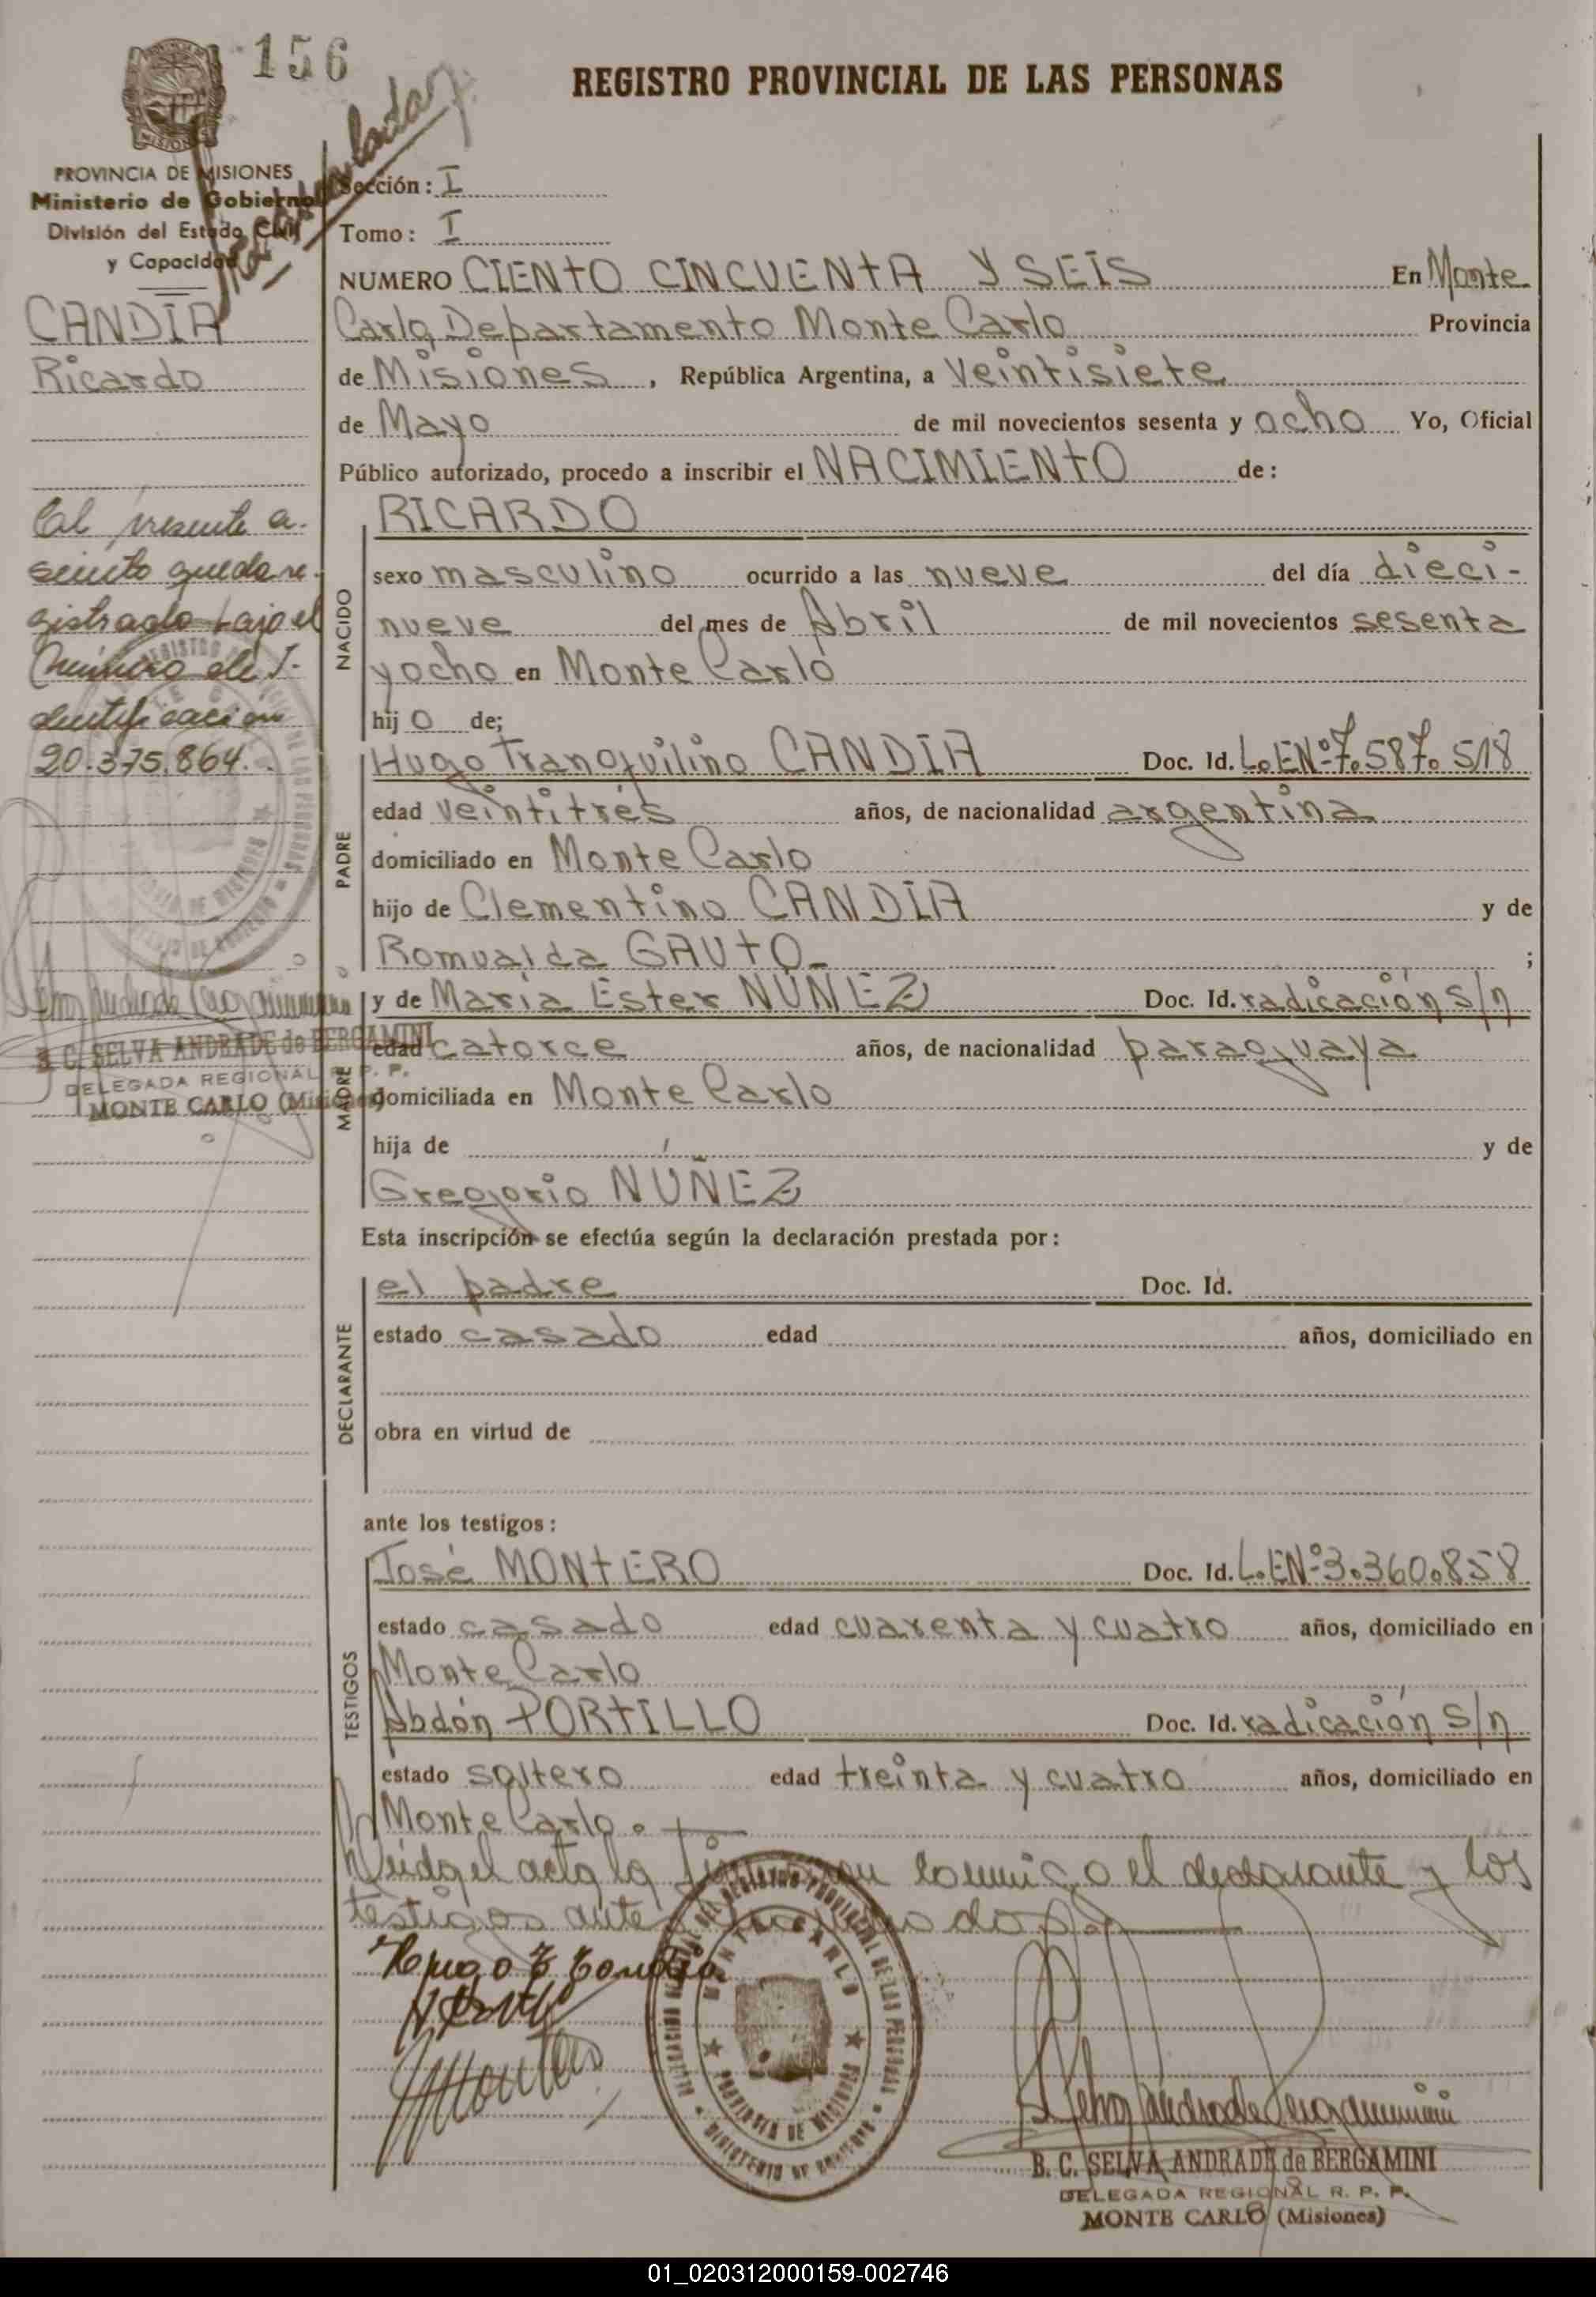 156
REGISTRO PROVINCIAL DE LAS PERSONAS
PROVINCIA DE MISIONES
Ministerio de Gobierno
División del Estado Civil
y Capacidad
Sección: I
Tomo: I
NUMERO CIENTO CINCUENTA Y SEIS En Monte
CANDIA
Carlo, Departamento Monte Carlo Provincia
Ricardo
de Misiones, República Argentina, a veintisiete
de Mayo de mil novecientos sesenta y ocho Yo, Oficial
Público autorizado, procedo a inscribir el NACIMIENTO de:
El presente a-
siento queda re-
gistrado bajo el
Número de I-
dentificación
20.375.864.
NACIDO
RICARDO
sexo masculino ocurrido a las nueve del día dieci-
nueve del mes de Abril de mil novecientos sesenta
y ocho en Monte Carlo
hijo de;
PADRE
Hugo Tranquilino CANDIA Doc. Id. L.E.Nº 7.587.518
edad veintitrés años, de nacionalidad argentina
domiciliado en Monte Carlo
hijo de Clementino CANDIA y de
Romualda GAUTO ;
MADRE
y de María Ester NÚÑEZ Doc. Id. radicación s/n
edad catorce años, de nacionalidad paraguaya
domiciliada en Monte Carlo
hija de y de
Gregorio NÚÑEZ
B. C. SELVA ANDRADE de BERGAMINI
DELEGADA REGIONAL R. P. P.
MONTE CARLO (Misiones)
Esta inscripción se efectúa según la declaración prestada por:
DECLARANTE
el padre Doc. Id.
estado casado edad años, domiciliado en
obra en virtud de
ante los testigos:
TESTIGOS
José MONTERO Doc. Id. L.E.Nº 3.360.858
estado casado edad cuarenta y cuatro años, domiciliado en
Monte Carlo
Abdón PORTILLO Doc. Id. radicación s/n
estado soltero edad treinta y cuatro años, domiciliado en
Monte Carlo.
Leída el acta la firman conmigo el declarante y los
testigos ante
Hugo T Candia
MONTE CARLO
PROVINCIA DE MISIONES
MINISTERIO DE GOBIERNO
B. C. SELVA ANDRADE de BERGAMINI
DELEGADA REGIONAL R. P. P.
MONTE CARLO (Misiones)
01_020312000159-002746